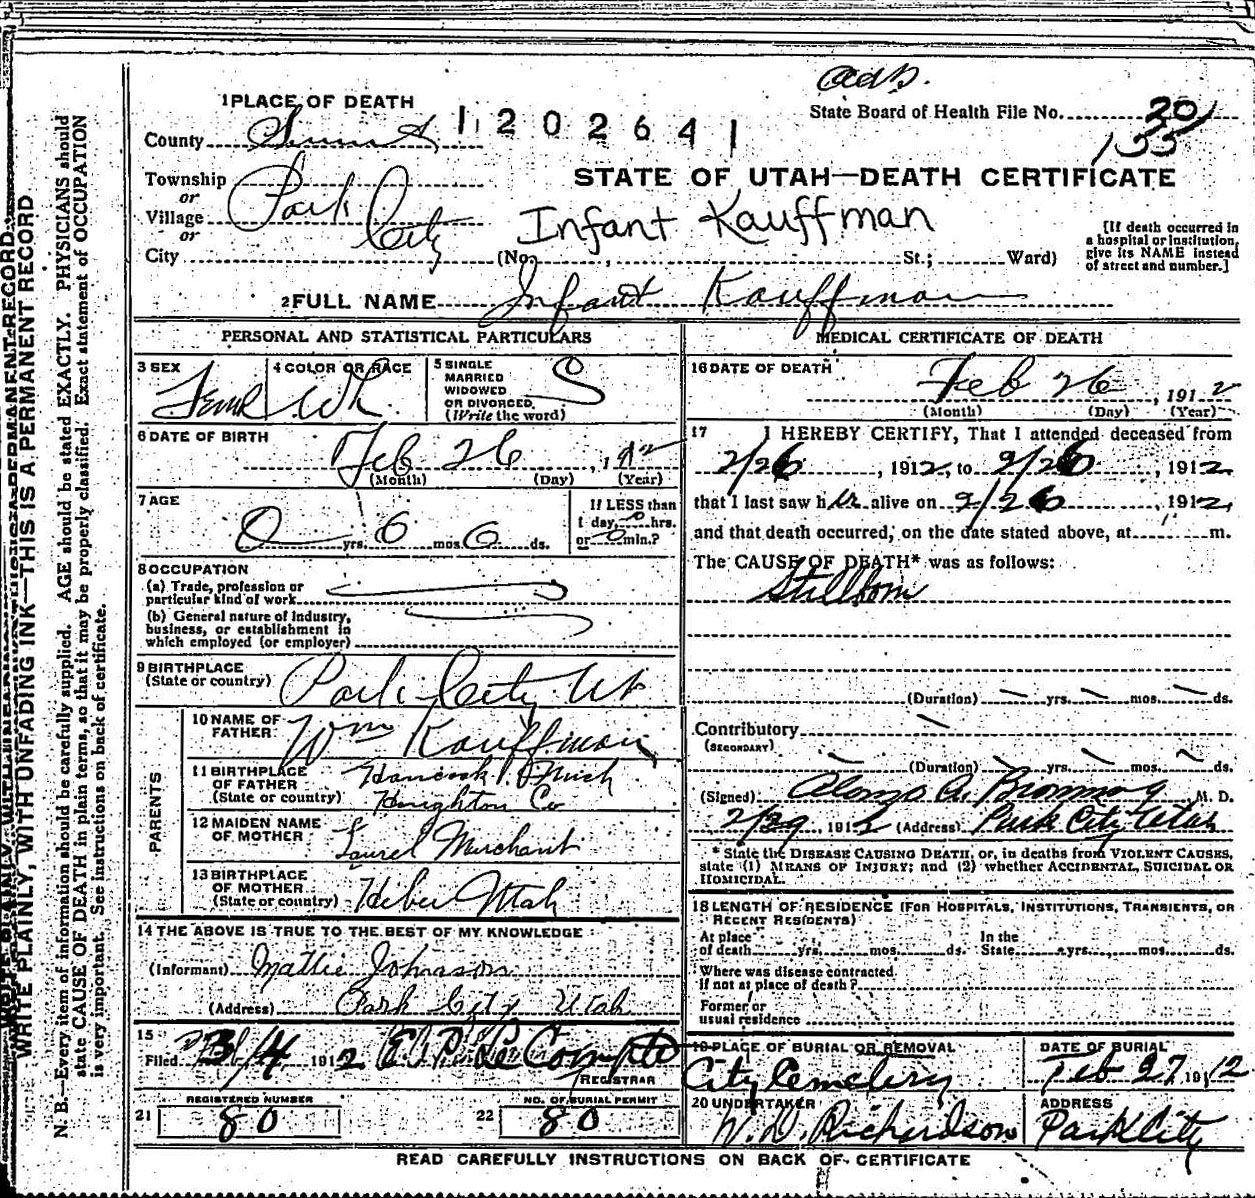 ads.
1 PLACE OF DEATH
State Board of Health File No. 20
135
County Summit
1202641
Township
or
Village
or
City
Park City
STATE OF UTAH—DEATH CERTIFICATE
Infant Kauffman
(No. , St.; Ward)
[If death occurred in
a hospital or institution,
give its NAME instead
of street and number.]
2 FULL NAME Infant Kauffman
PERSONAL AND STATISTICAL PARTICULARS
3 SEX
Femal
4 COLOR OR RACE
Wh.
5 SINGLE
MARRIED
WIDOWED
OR DIVORCED
(Write the word)
S
6 DATE OF BIRTH
Feb 26, 1912
(Month) (Day) (Year)
7 AGE
0 yrs. 0 mos. 0 ds.
If LESS than
1 day, 0 hrs.
or 0 min.?
8 OCCUPATION
(a) Trade, profession or
particular kind of work
(b) General nature of Industry,
business, or establishment in
which employed (or employer)
9 BIRTHPLACE
(State or country)
Park City Ut
PARENTS
10 NAME OF
FATHER
Wm Kauffman
11 BIRTHPLACE
OF FATHER
(State or country)
Hancock Mich
Houghton Co
12 MAIDEN NAME
OF MOTHER
Laurel Murchant
13 BIRTHPLACE
OF MOTHER
(State or country)
Heber Utah
14 THE ABOVE IS TRUE TO THE BEST OF MY KNOWLEDGE
(Informant) Mattie Johnason
(Address) Park City Utah
15
Filed 3/4 1912 E. P. Le Compte
REGISTRAR
21 REGISTERED NUMBER
80
22 NO. OF BURIAL PERMIT
80
MEDICAL CERTIFICATE OF DEATH
16 DATE OF DEATH
Feb 26, 1912
(Month) (Day) (Year)
17 I HEREBY CERTIFY, That I attended deceased from
2/26, 1912, to 2/26, 1912,
that I last saw her alive on 2/26, 1912,
and that death occurred, on the date stated above, at m.
The CAUSE OF DEATH* was as follows:
Stillborn
(Duration) yrs. mos. ds.
Contributory
(SECONDARY)
(Duration) yrs. mos. ds.
(Signed) Alonzo A. M. D.
2/29, 1912 (Address) Park City Utah
* State the DISEASE CAUSING DEATH, or, in deaths from VIOLENT CAUSES,
state (1) MEANS OF INJURY; and (2) whether ACCIDENTAL, SUICIDAL OR
HOMICIDAL.
18 LENGTH OF RESIDENCE (FOR HOSPITALS, INSTITUTIONS, TRANSIENTS, OR
RECENT RESIDENTS)
At place
of death yrs. mos. ds.
In the
State yrs. mos. ds.
Where was disease contracted
if not at place of death?
Former or
usual residence
19 PLACE OF BURIAL OR REMOVAL
City Cemetery
DATE OF BURIAL
Feb 27, 1912
20 UNDERTAKER
W. D. Richardson
ADDRESS
Park City
READ CAREFULLY INSTRUCTIONS ON BACK OF CERTIFICATE
WRITE PLAINLY, WITH UNFADING INK—THIS IS A PERMANENT RECORD
N. B.—Every item of information should be carefully supplied. AGE should be stated EXACTLY. PHYSICIANS should
state CAUSE OF DEATH in plain terms, so that it may be properly classified. Exact statement of OCCUPATION
is very important. See instructions on back of certificate.